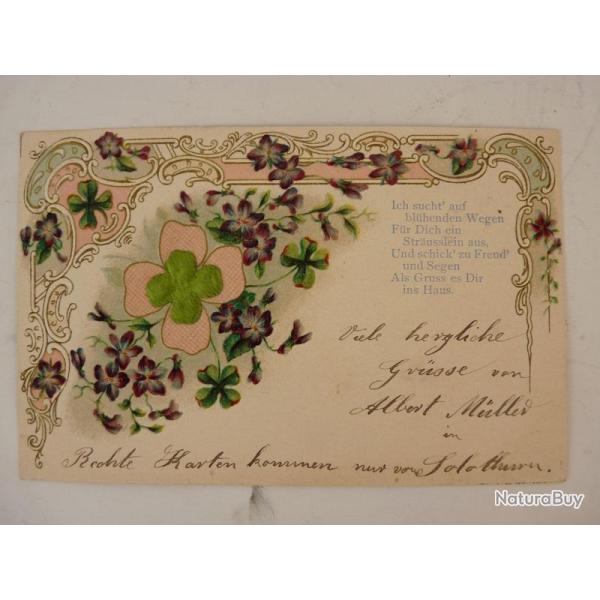 Ich sucht' auf
blühenden Wegen
Für Dich ein
Sträusslein aus,
Und schick' zu Freud'
und Segen
Als Gruss es Dir
ins Haus.
Viele herzliche
Grüsse von
Albert Müller
in
Karten kommen nur von Solothurn.
NaturaBuy